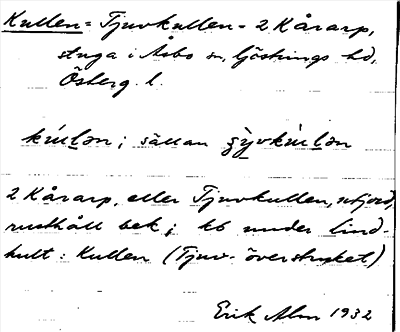 Kullen = Tjuvkullen = 2 Kårarp,
stuga i Asbo sn, Göstrings hd,
Östergl.
kɯlən; sällan ʒyvkɯlən
2 Kårarp, eller Tjuvkullen, utjord,
rusthåll bek; kb under Lind-
hult: Kullen (Tjuv- överstruket)
Erik Alm 1932